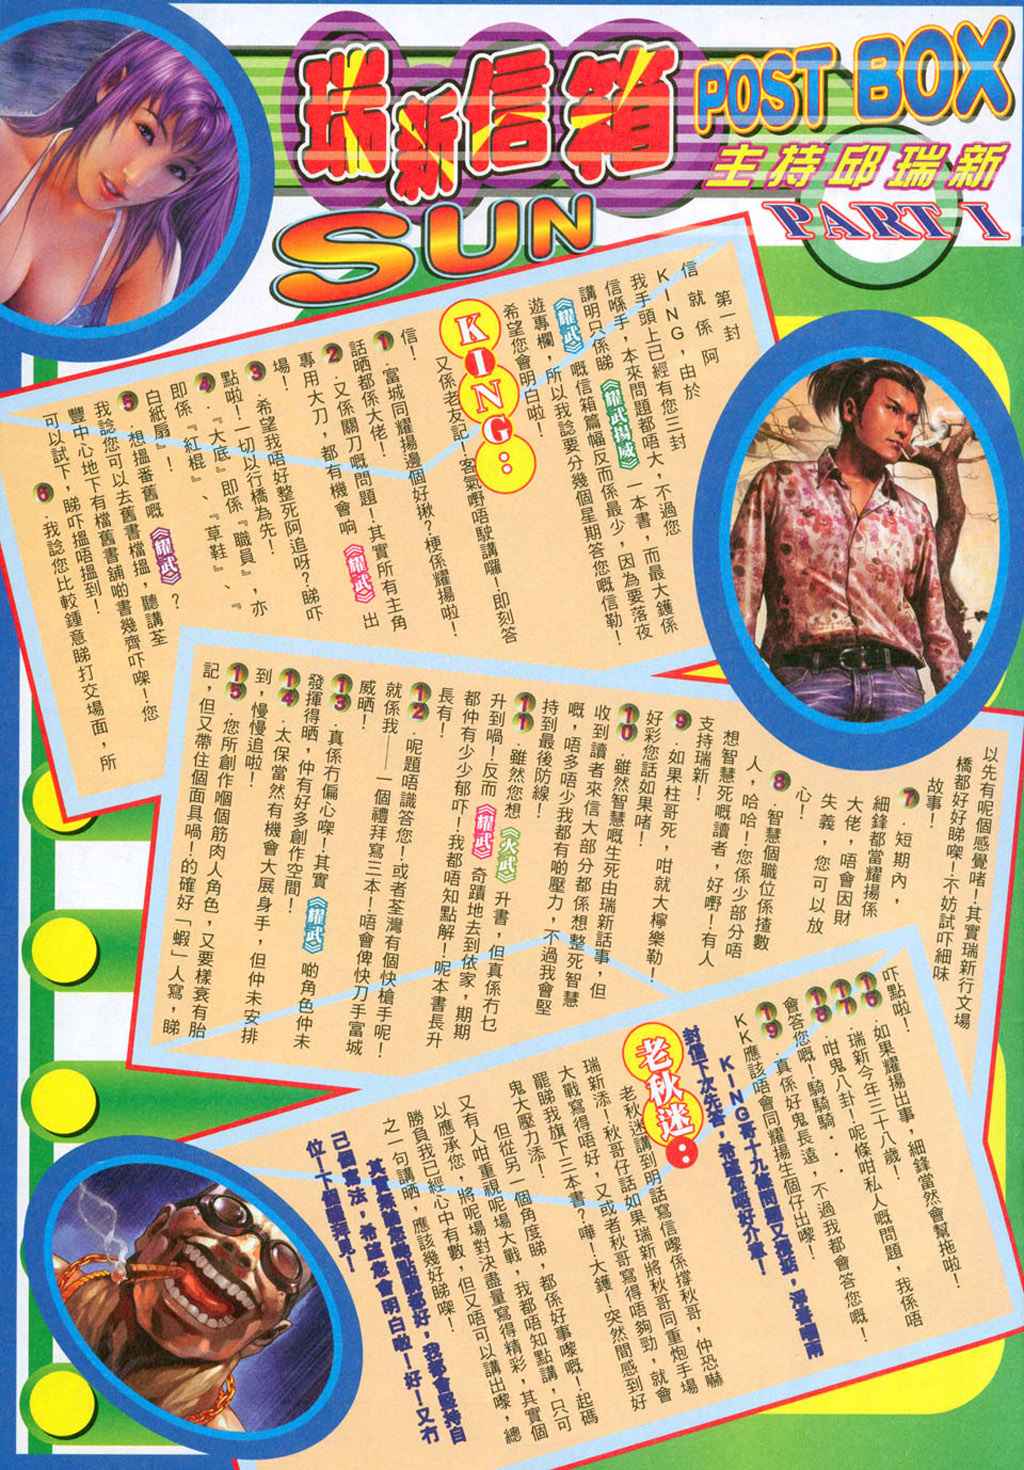 瑞新信箱
SUN
POST BOX
主持邱瑞新
PART I
第一封
信就係阿
KING，由於
我手頭上已經有您三封
信喺手，本來問題都唔大，不過您
講明只係睇《耀武揚威》一本書，而最大鑊係
《耀武》嘅信箱篇幅反而係最少，因為要落夜
遊專欄，所以我諗要分幾個星期答您嘅信勒！
希望您會明白啦！
KING：
又係老友記！客氣嘢唔駛講囉！即刻答
信！
1．富城同耀揚邊個好揪？梗係耀揚啦！
話晒都係大佬！
2．又係關刀嘅問題！其實所有主角
專用大刀，都有機會响《耀武》出
場！
3．希望我唔好整死阿追呀？睇吓
點啦！一切以行橋為先！
4．『大底』即係『職員』，亦
即係『紅棍』、『草鞋』、『
白紙扇』！
5．想搵番舊嘅《耀武》？
我諗您可以去舊書檔搵，聽講荃
豐中心地下有檔舊書舖啲書幾齊吓㗎！您
可以試下，睇吓搵唔搵到！
6．我諗您比較鍾意睇打交場面，所
以先有呢個感覺啫！其實瑞新行文場
橋都好好睇㗎！不妨試吓細味
故事！
7．短期內，
細鋒都當耀揚係
大佬，唔會因財
失義，您可以放
心！
8．智慧個職位係揸數
人，哈哈！您係少部分唔
想智慧死嘅讀者，好嘢！有人
支持瑞新！
9．如果柱哥死，咁就大檸樂勒！
好彩您話如果啫！
10．雖然智慧嘅生死由瑞新話事，但
收到讀者來信大部分都係想整死智慧
嘅，唔多唔少我都有啲壓力，不過我會堅
持到最後防線！
11．雖然您想《火武》升書，但真係冇乜
升到喎！反而《耀武》奇蹟地去到依家，期期
都仲有少少郁吓！我都唔知點解！呢本書長升
長有！
12．呢題唔識答您！或者荃灣有個快槍手呢！
就係我——一個禮拜寫三本！唔會俾快刀手富城
威晒！
13．真係冇偏心㗎！其實《耀武》啲角色仲未
發揮得晒，仲有好多創作空間！
14．太保當然有機會大展身手，但仲未安排
到，慢慢追啦！
15．您所創作嗰個筋肉人角色，又要樣衰有胎
記，但又帶住個面具喎！的確好「蝦」人寫，睇
吓點啦！
16．如果耀揚出事，細鋒當然會幫拖啦！
17．瑞新今年三十八歲！
18．咁鬼八卦！呢條咁私人嘅問題，我係唔
會答您嘅！騎騎騎...
19．真係好鬼長遠，不過我都會答您嘅！
KK應該唔會同耀揚生個仔出嚟！
KING哥十九條問題又搞掂，淨番嗰兩
封信下次先答，希望您唔好介意！
老秋迷：
老秋迷講到明話寫信嚟係撐秋哥，仲恐嚇
瑞新添！秋哥仔話如果瑞新將秋哥同重炮手場
大戰寫得唔好，又或者秋哥寫得唔夠勁，就會
罷睇我旗下三本書？嘩！大鑊！突然間感到好
鬼大壓力添！
但從另一個角度睇，都係好事嚟嘅！起碼
又有人咁重視呢場大戰，我都唔知點講，只可
以應承您，將呢場對決盡量寫得精彩，其實個
勝負我已經心中有數，但又唔可以講出嚟，總
之一句講晒，應該幾好睇㗎！
其實無論您哋點睇都好，我都會堅持自
己個寫法，希望您會明白啦！好！又冇
位！下個星期見！